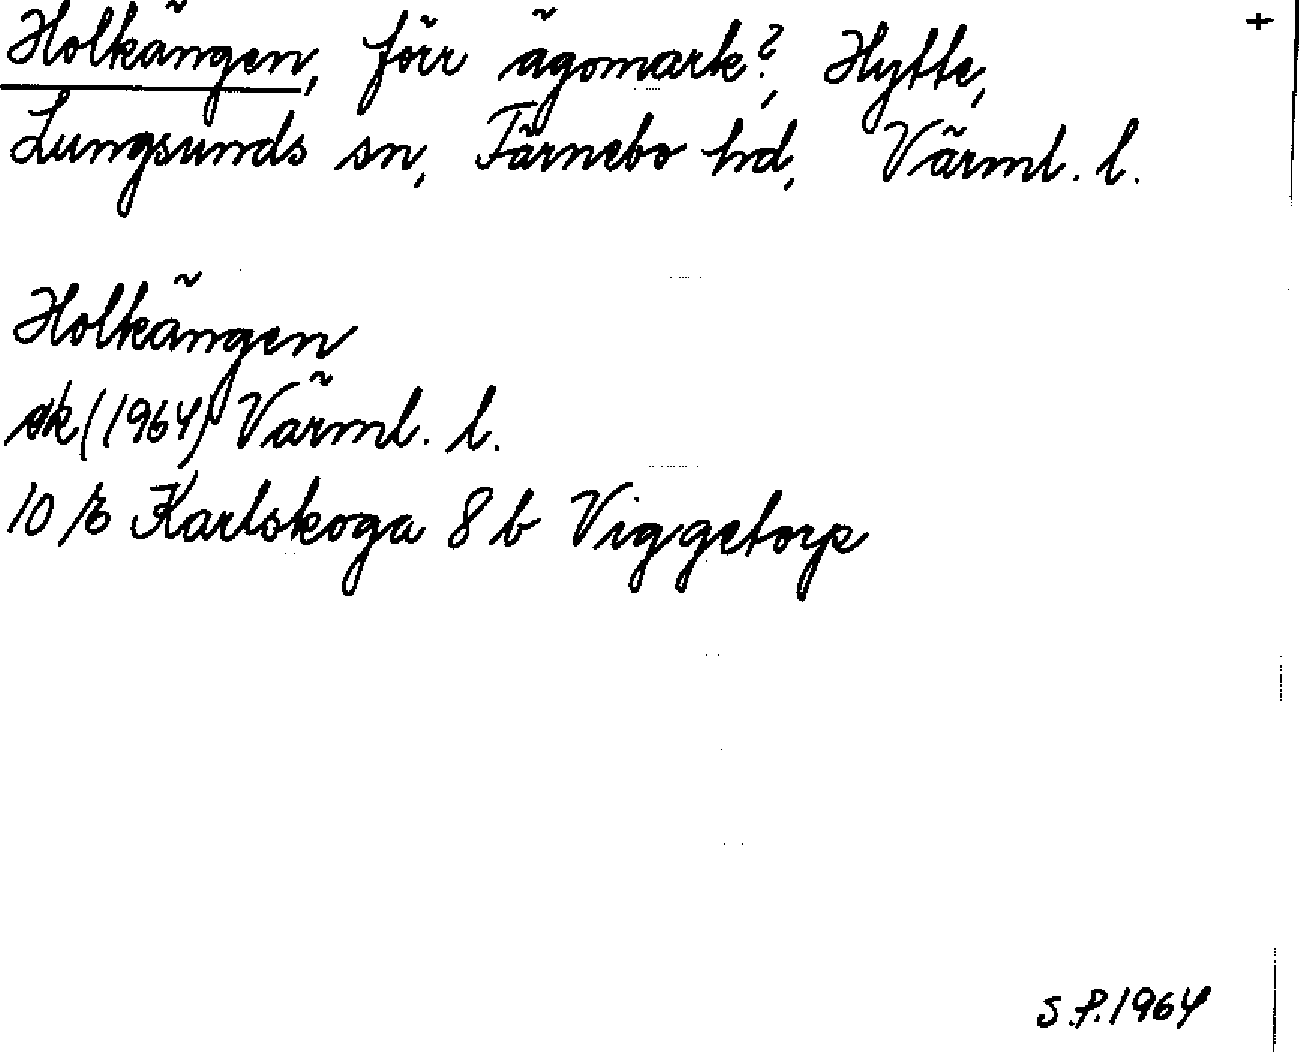 Holkängen, förr ägomark?, Hytte, +
Lungsunds sn, Färnebo hd, Värml. l.
Holkängen
ek (1964) Värml. l.
10 E Karlskoga 8 b Viggetorp
S.P. 1964